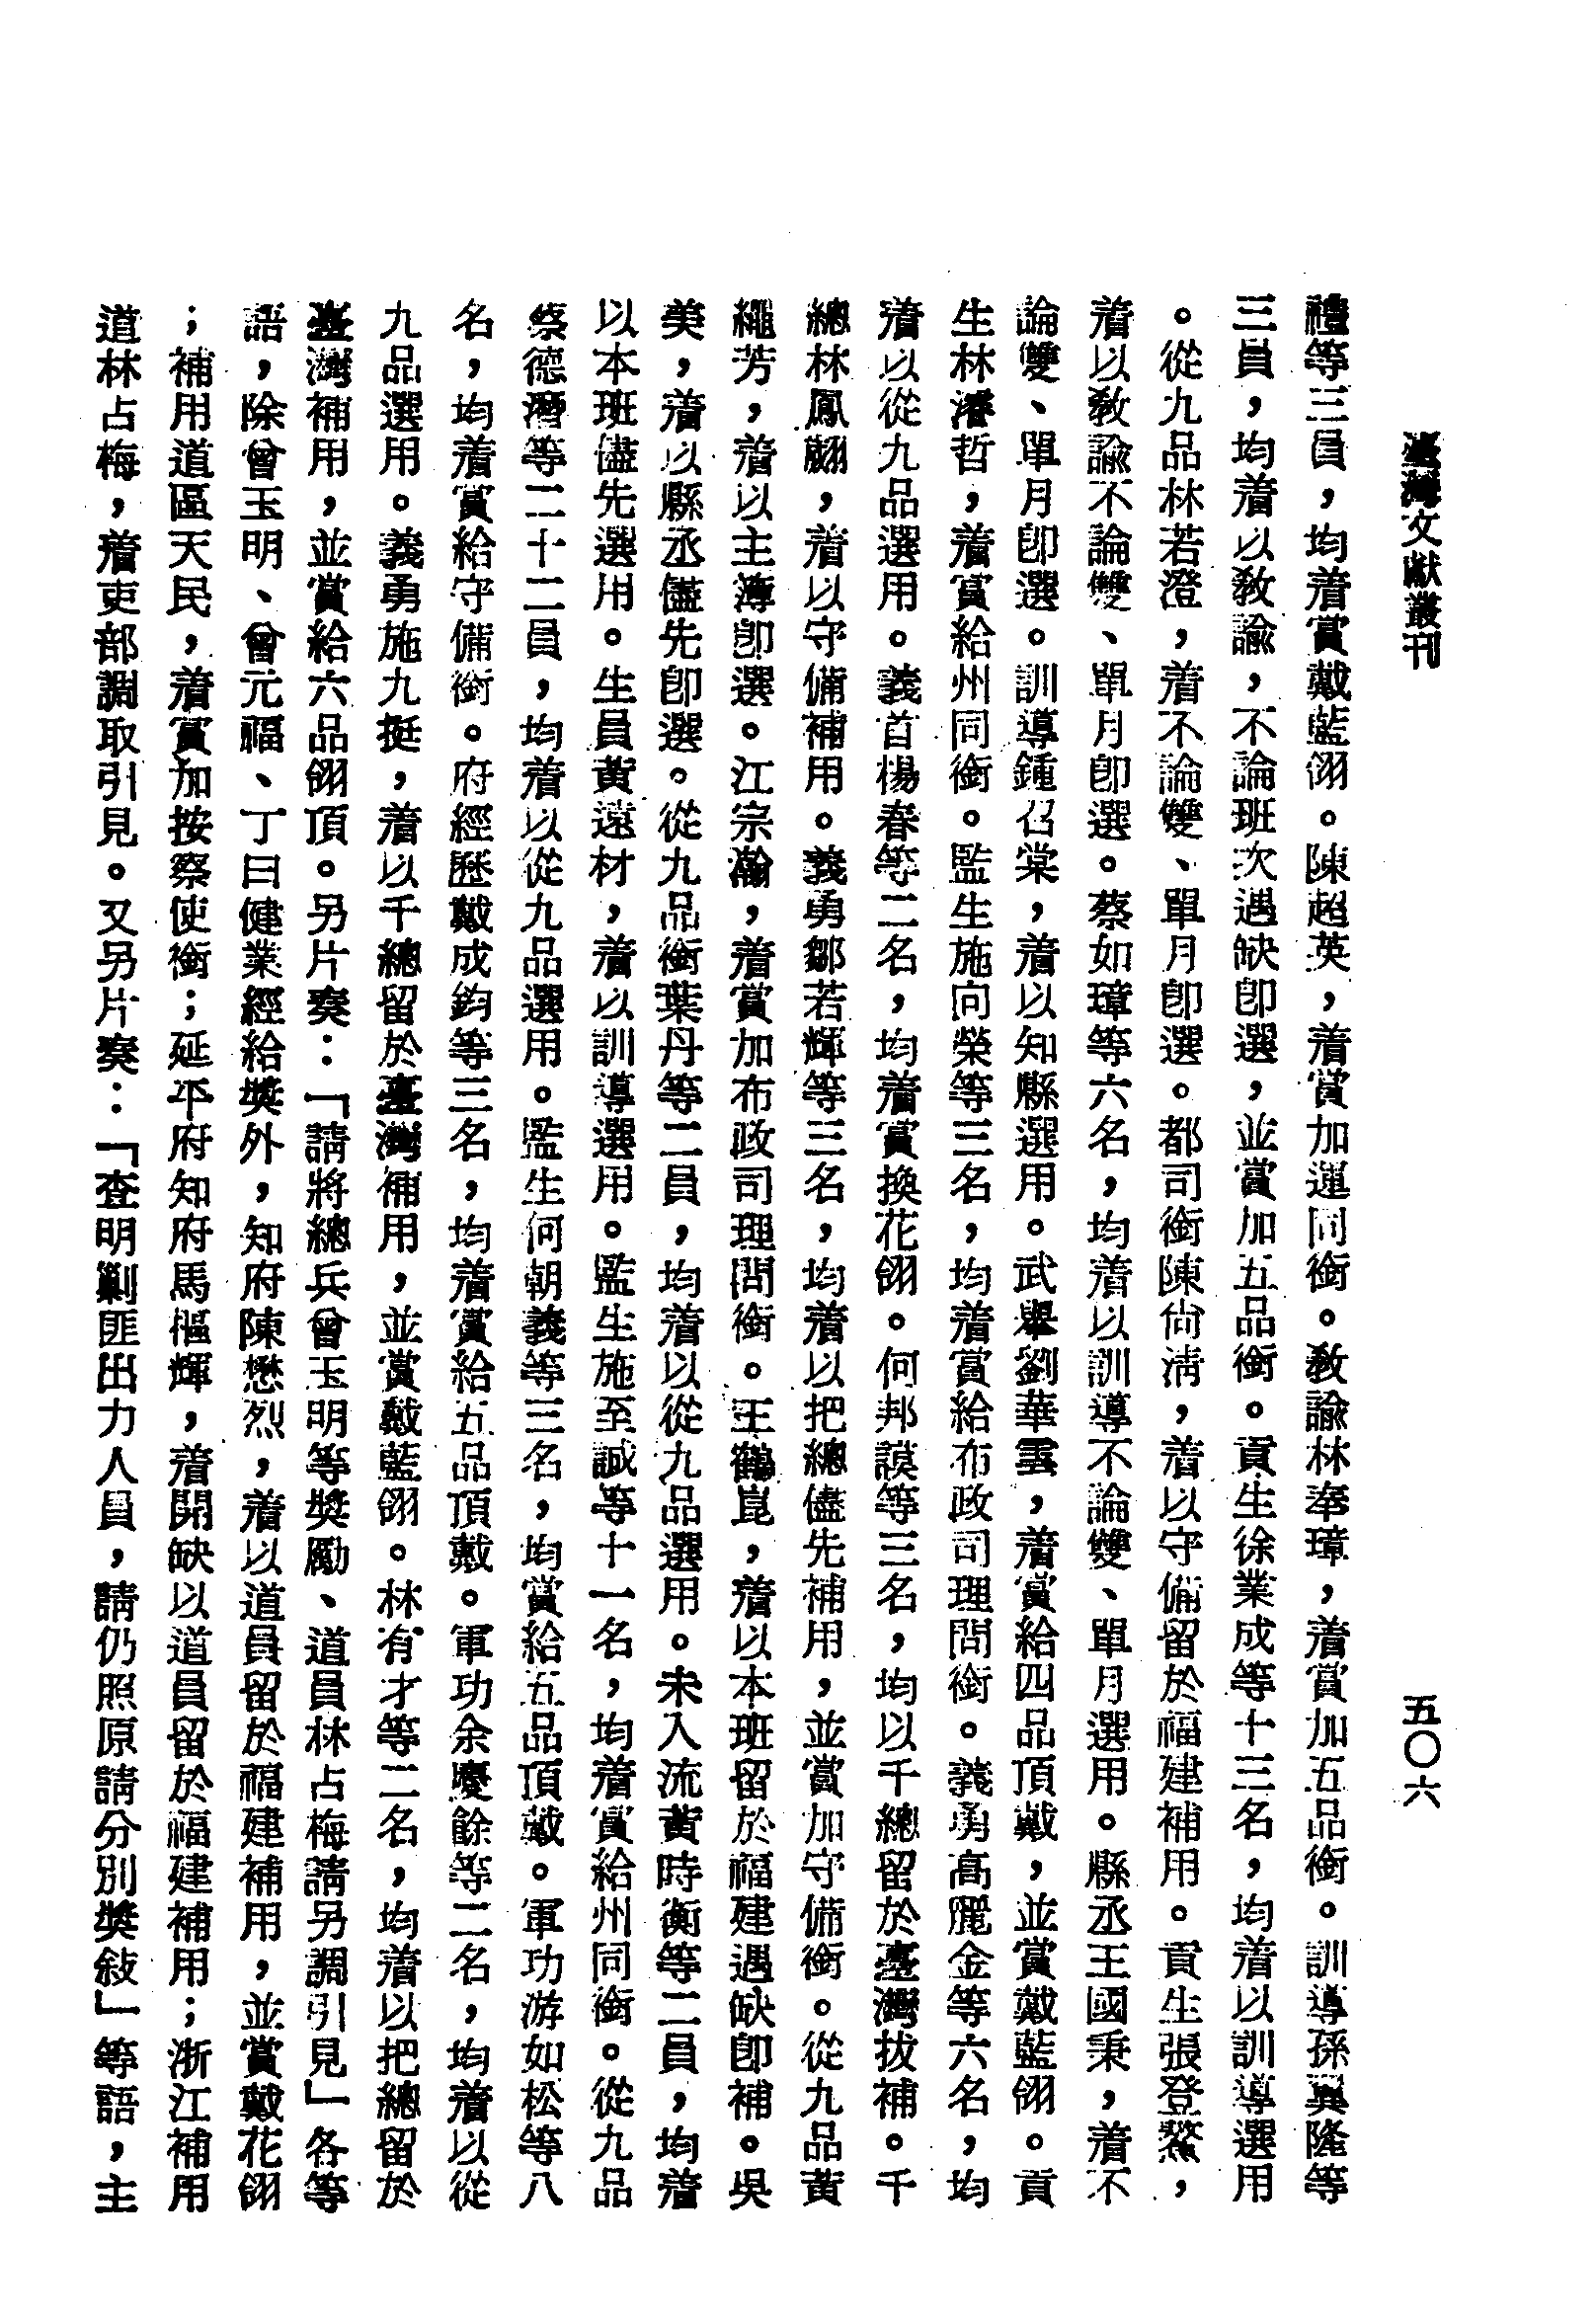 臺灣文獻叢刊
五〇六
禮等三員，均着賞戴藍翎。陳超英，着賞加運同銜。敎諭林奉璋，着賞加五品銜。訓導孫翼隆等
三員，均着以敎諭，不論班次遇缺卽選，並賞加五品銜。貢生徐業成等十三名，均着以訓導選用
。從九品林若澄，着不論雙、單月卽選。都司銜陳尙淸，着以守備留於福建補用。貢生張登鰲，
着以敎諭不論雙、單月卽選。蔡如璋等六名，均着以訓導不論雙、單月選用。縣丞王國秉，着不
論雙、單月卽選。訓導鍾召棠，着以知縣選用。武舉劉華雲，着賞給四品頂戴，並賞戴藍翎。貢
生林濬哲，着賞給州同銜。監生施向榮等三名，均着賞給布政司理問銜。義勇高麗金等六名，均
着以從九品選用。義首楊春等二名，均着賞換花翎。何邦謨等三名，均以千總留於臺灣拔補。千
總林鳳翽，着以守備補用。義勇鄒若輝等三名，均着以把總儘先補用，並賞加守備銜。從九品黃
繩芳，着以主溥卽選。江宗瀚，着賞加布政司理問銜。王鶴崑，着以本班留於福建遇缺卽補。吳
美，着以縣丞儘先卽選。從九品銜葉丹等二員，均着以從九品選用。未入流黃時衡等二員，均着
以本班儘先選用。生員黃遠材，着以訓導選用。監生施至誠等十一名，均着賞給州同銜。從九品
蔡德潛等二十二員，均着以從九品選用。監生何朝義等三名，均賞給五品頂戴。軍功游如松等八
名，均着賞給守備銜。府經歷戴成鈞等三名，均着賞給五品頂戴。軍功余慶餘等二名，均着以從
九品選用。義勇施九挺，着以千總留於臺灣補用，並賞戴藍翎。林有才等二名，均着以把總留於
臺灣補用，並賞給六品翎頂。另片奏：「請將總兵曾玉明等獎勵、道員林占梅請另調引見」各等
語，除曾玉明、曾元福、丁曰健業經給獎外，知府陳懋烈，着以道員留於福建補用，並賞戴花翎
；補用道區天民，着賞加按察使銜；延平府知府馬樞輝，着開缺以道員留於福建補用；浙江補用
道林占梅，着吏部調取引見。又另片奏：「查明剿匪出力人員，請仍照原請分別獎敍」等語，主